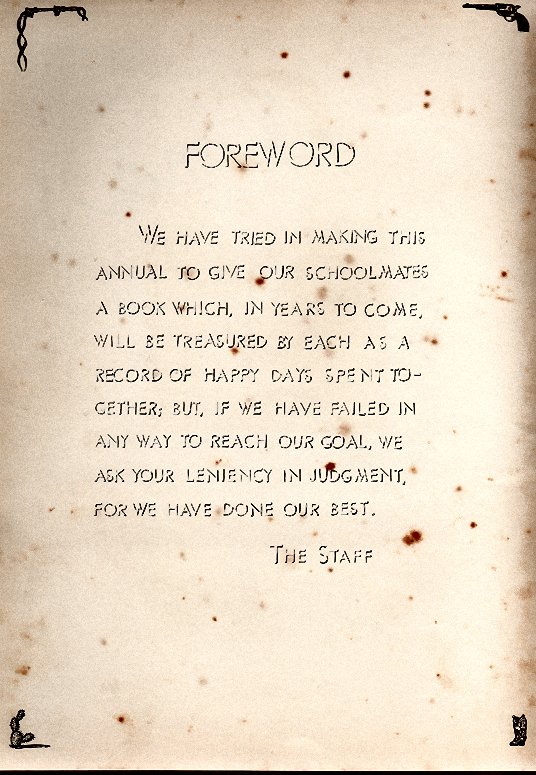 FOREWORD
WE HAVE TRIED IN MAKING THIS
ANNUAL TO GIVE OUR SCHOOLMATES
A BOOK WHICH, IN YEARS TO COME,
WILL BE TREASURED BY EACH AS A
RECORD OF HAPPY DAYS SPENT TO-
GETHER; BUT, IF WE HAVE FAILED IN
ANY WAY TO REACH OUR GOAL, WE
ASK YOUR LENIENCY IN JUDGMENT,
FOR WE HAVE DONE OUR BEST.
THE STAFF